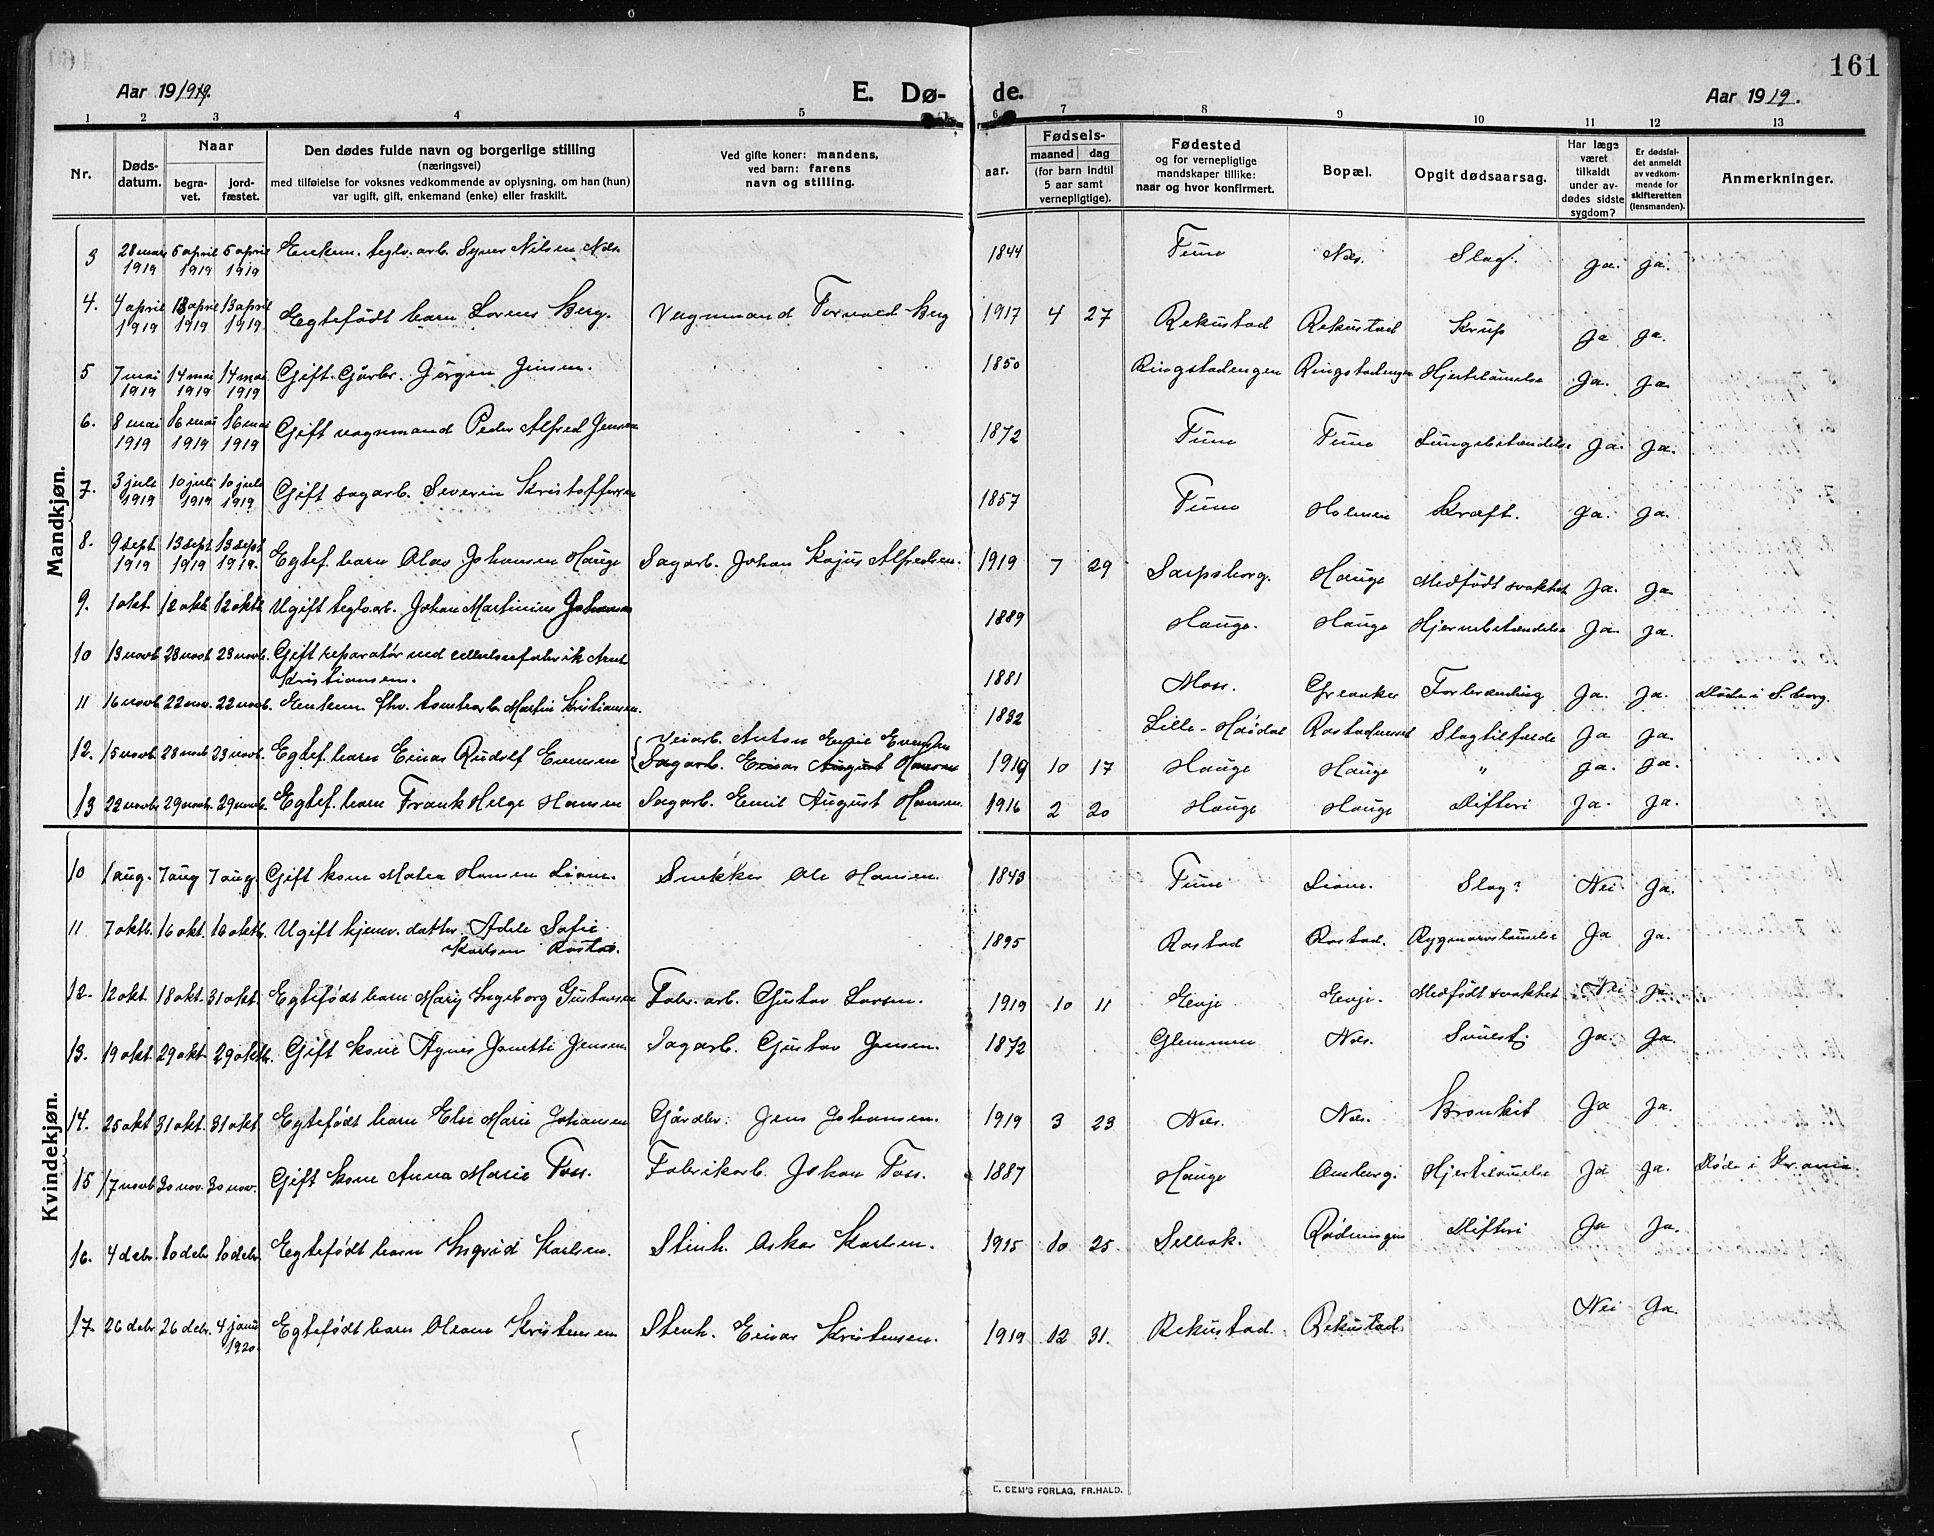 161
Aar 19/919.
E. Dø-
de.
Aar 1919.
1 2 3 4 5 6 7 8 9 10 11 12 13
Nr.
Døds-
datum.
Naar
begra-
vet.
jord-
fæstet.
Den dødes fulde navn og borgerlige stilling
(næringsvei)
med tilføielse for voksnes vedkommende av oplysning, om han (hun)
var ugift, gift, enkemand (enke) eller fraskilt.
Ved gifte koner: mandens,
ved barn: farens
navn og stilling.
aar.
Fødsels-
maaned dag
(for barn indtil
5 aar samt
vernepligtige).
Fødested
og for vernepligtige
mandskaper tillike:
naar og hvor konfirmert.
Bopæl.
Opgit dødsaarsag.
Har læge
været
tilkaldt
under av-
dødes sidste
sygdom?
Er dødsfal-
det anmeldt
av vedkom-
mende for
skifteretten
(lensmanden).
Anmerkninger.
Mandkjøn.
3 28 mars 1919 5 april 1919 5 april 1919 Enkem. teglv. arb. Syver Nilsen Næs 1844 Tune Næs. Slag. Ja. Ja.
4. 4 april 1919 13 april 1919 13 april 1919 Egtefödt barn Lorens Berg. Vognmand Torvald Berg 1917 4 27 Rekustad Rekustad Krup Ja Ja.
5 7 mai 1919 14 mai 1919 14 mai 1919 Gift. Gårbr. Jørgen Jensen. 1850 Ringstadengen Ringstadengen Hjertelamelse Ja. Ja.
6. 8 mai 1919 16 mai 1919 16 mai 1919 Gift vognmand Peder Alfred Jensen 1872 Tune Tune Lungebetændelse Ja. Ja.
7. 3 juli 1919 10 juli 1919 10 juli 1919 Gift sagarb. Severin Kristoffersen 1857 Tune Holmen Kræft. Ja. Ja.
8. 9 sept 1919 13 sept 1919 13 sept 1919. Egtef. barn Olav Johansen Hauge Sagarb. Johan Kajus Alfredsen. 1919 7 29 Sarpsborg. Hauge Medfödt svakhet Ja. Ja.
9. 1 okt. 12 okt. 12 okt. Ugift teglv.arb. Johan Martinius Johansen 1889 Hauge. Hauge Hjernebetændelse Ja. Ja.
10 13 novb 23 novb 23 novb. Gift reparatör ved cellulosefabrik Arnt
Kristiansen. 1881 Moss. Greaaker Forbrænding Ja. Ja. Døde i S.borg.
11 16 novb 22 nov. 22 novb. Enkem fhv. tomtearb. Martin Kristiansen. 1832 Lille-Haödal Rostadneset Slagtilfælde Ja Ja.
12. 15 novb. 23 novb 23 novb. Egtef. barn Einar Rudolf Evensen Veiarb. Anton Emil Evensen
Sagarb. Einar August Hansen 1919 10 17 Hauge Hauge " Ja. Ja.
13 22 novbr 29 novbr. 29 novbr. Egtef. barn Frank Helge Hansen Sagarb. Emil August Hansen. 1916 2 20 Hauge Hauge Difteri Ja. Ja.
Kvindekjøn.
10 1 aug. 7 aug 7 aug. Gift kone Matea Hansen Liane. Snekker Ole Hansen. 1843 Tune Liane. Slag? Nei Ja.
11 7 oktb. 16 okt. 16 oktb. Ugift hjemv. datter Adele Sofie
Karlsen Rostad. 1895 Rostad Rostad. Rygmarvslamelse Ja Ja.
12. 12 okt. 18 okt. 31 okt. Egtefödt barn Mary Ingeborg Gustavsen Fabr. arb. Gustav Larsen. 1919 10 11 Evje Evje. Medfödt svakhet Nei Ja
13. 19 okt. 29 okt. 29 oktb. Gift kone Agnes Janette Jensen Sagarb. Gustav Jensen. 1872 Glemmen Næs. Svulst Ja. Ja.
14. 25 okt 31 okt. 31 okt. Egtefödt barn Else Marie Johansen Gårdbr. Jens Johansen. 1919 3 23 Næs. Næs. Bronkit Ja Ja.
15 17 novb 30 nov. 30 nov. Gift kone Anna Marie Foss. Fabrikarb. Johan Foss. 1887 Hauge Amberg. Hjertelamelse Ja Ja. Døde i Kr.ania.
16. 4 debr. 10 debr 10 debr. Egtefödt barn Ingrid Karlsen. Stenh. Oskar Karlsen. 1915 10 25. Selbak. Rödningen Difteri Ja Ja.
17. 26 debr 26 debr. 4 janu 1920. Egtefödt barn Oleane Kristensen Stenh. Einar Kristensen. 1919 12 31. Rekustad. Rekustad Nei Ja.
E. SEM'S FORLAG, FR.HALD.